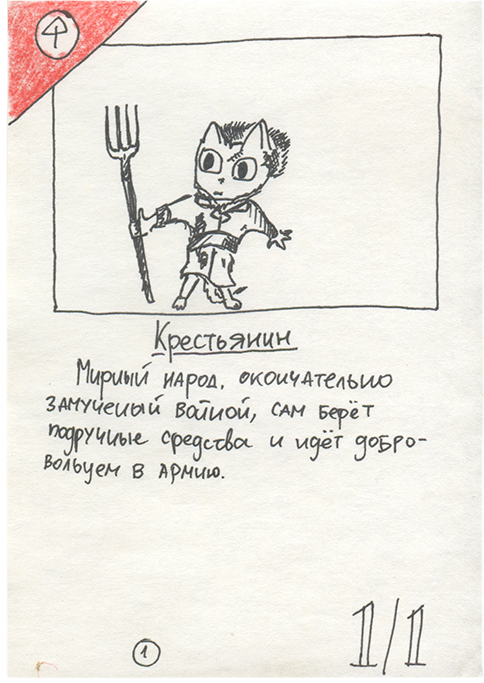 Крестьянин
Мирный народ, окончательно
замученый войной, сам берёт
подручные средства и идёт добро-
вольцем в армию.
1
1/1